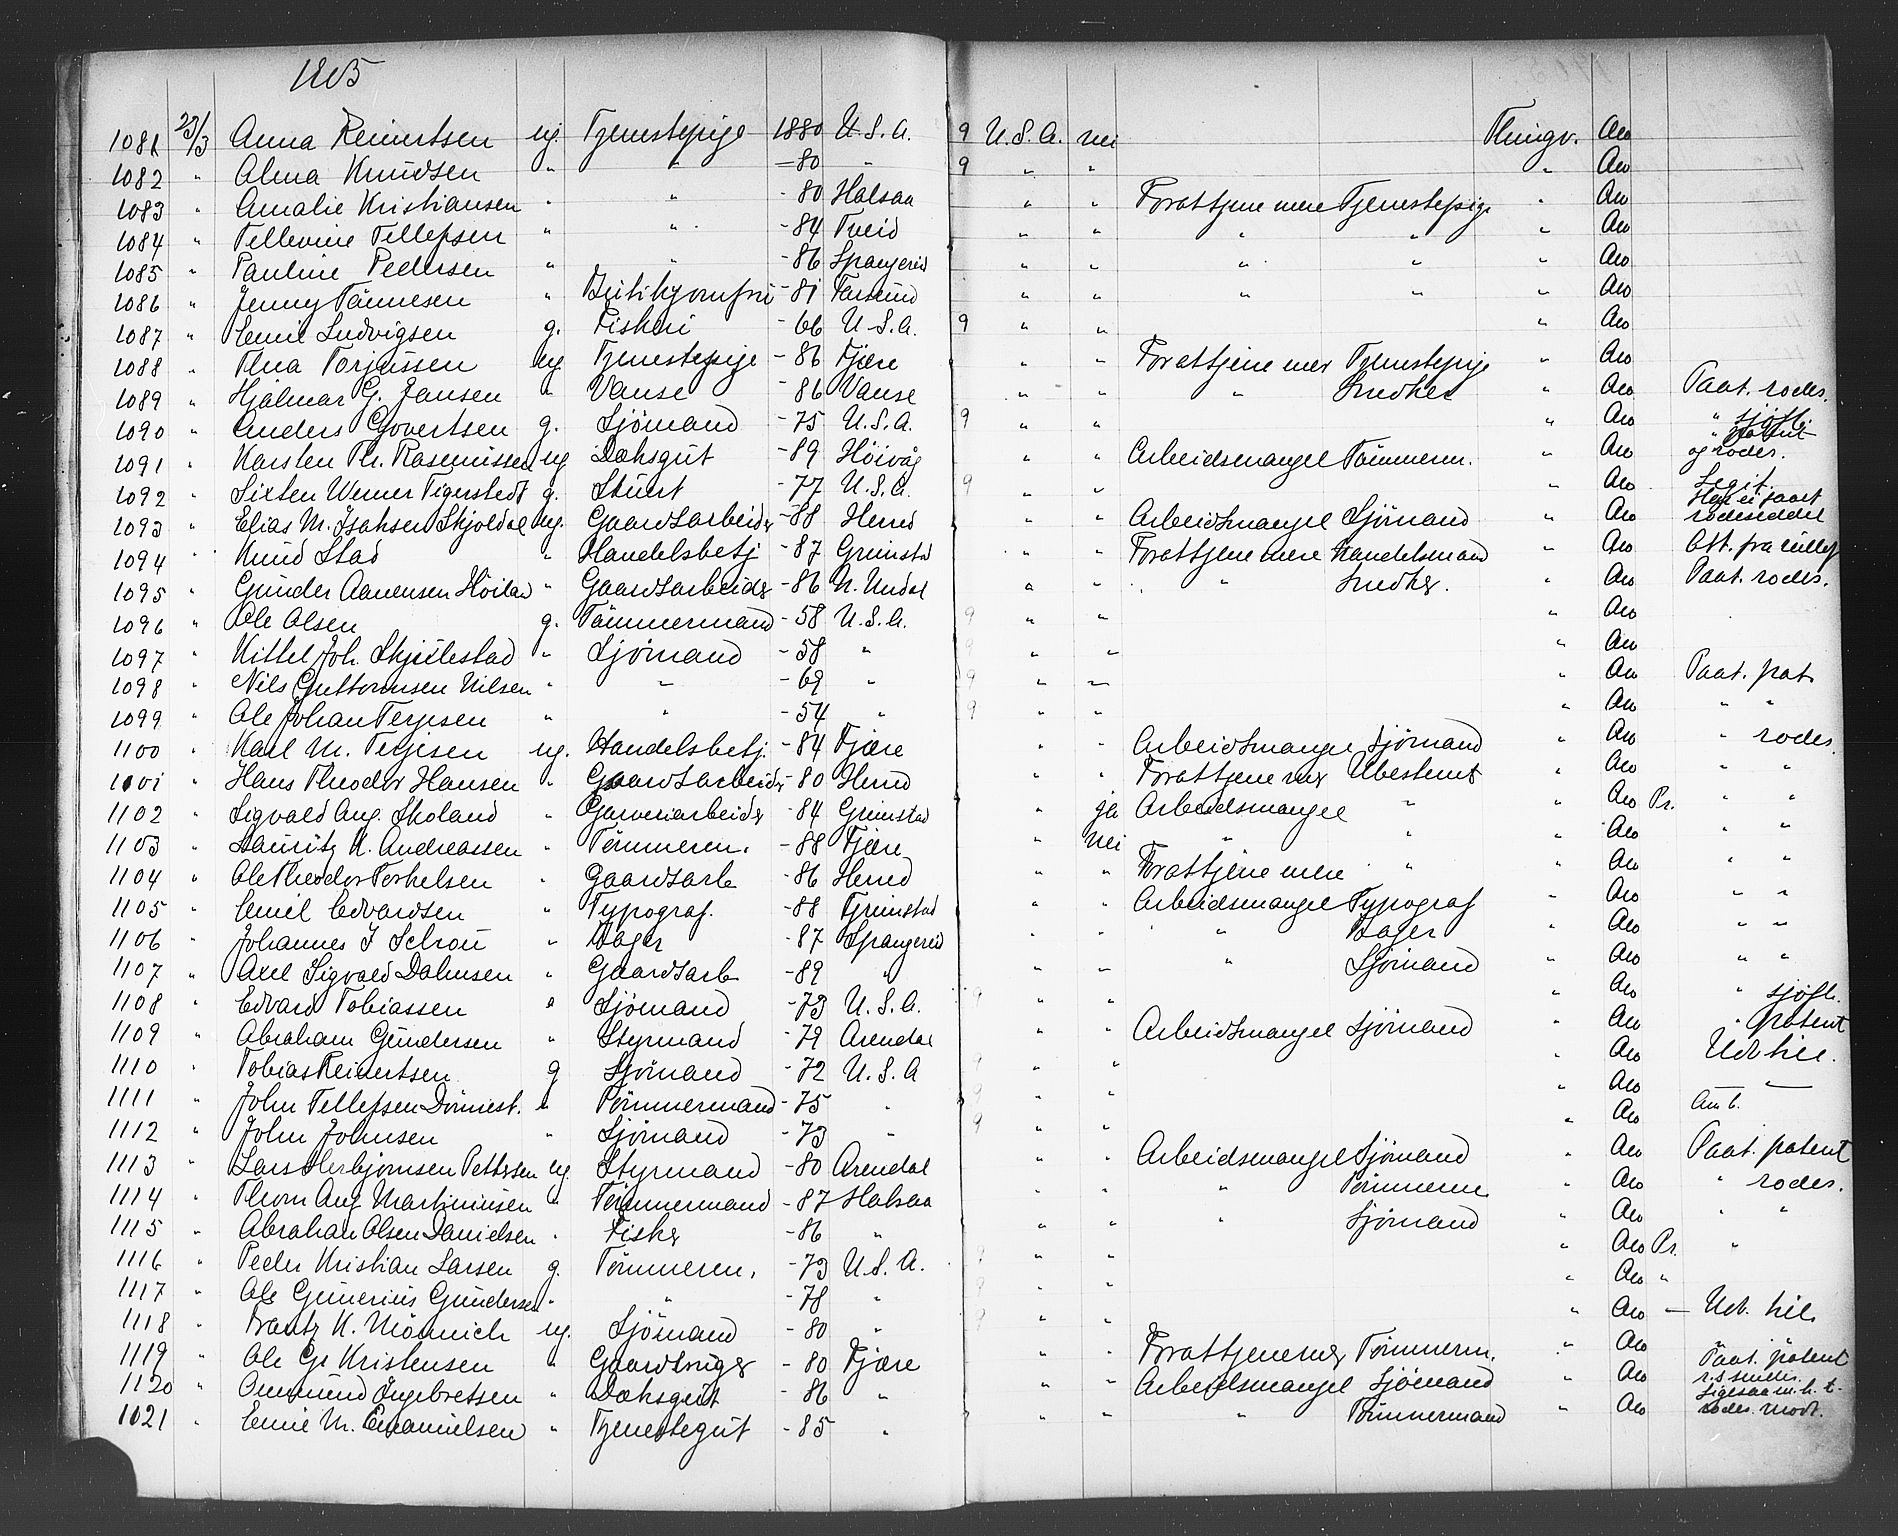 1905
1081 23/3 Anna Reinertsen ug. Tjenestepige 1880 U.S.A. 9 U.S.A. nei Thingv. Ao
1082 " Alma Knudsen " " -80 " 9 " " " Ao
1083 " Amalie Kristiansen " " -80 Halsaa " " For at tjene mere Tjenestepige " Ao
1084 " Tellevine Tellefsen " " -84 Tveid " " " " " Ao
1085 " Pauline Pedersen " " -86 Spangereid " " " " " Ao
1086 " Jenny Tønnesen " Butikjomfru -81 Farsund " " " " " Ao
1087 " Emil Ludvigsen g. Fisker -66 U.S.A. 9 " " " Ao
1088 " Thea Torjussen ug. Tjenestepige -86 Fjære " " For at tjene mer Tjenestepige " Ao
1089 " Hjalmar G. Jansen " Vanse -86 Vanse " " " Snedker " Ao Paat. rodes.
1090 " Anders Govertsen g. Sjømand -75 U.S.A. 9 " " " Ao " sjøfl.
1091 " Karsten Th. Rasmussen ug Dæksgut -89 Høivåg " " Arbeidsmangel Tømmerm. " Ao " patent og rodes.
1092 " Sixten Werner Tigerstedt g. Stuert -77 U.S.A. 9 " " " Ao Legit.
1093 " Elias M. Isaksen Skjoldal ug. Gaardsarbeider -88 Herred " " Arbeidsmangel Sjømand " Ao Har ei faaet rodeseddel
1094 " Knud Stad " Handelsbetj -87 Grimstad " " For at tjene mere Handelsmand " Ao Att. fra rullef
1095 " Gunder Aanensen Høiland " Gaardsarbeider -86 N. Undal " " " Snedker. " Ao Paat. rodes.
1096 " Ole Olsen g. Tømmermand -58 U.S.A. 9 " " " Ao
1097 " Kittel Joh. Skjulestad " Sjømand -58 " 9 " " " Ao
1098 " Nils Guttormsen Nilsen " " -69 " 9 " " " Ao Paat. pat.
1099 " Ole Johan Terjesen " " -54 " 9 " " " Ao " "
1100 " Karl M. Terjesen ug. Handelsbetj. -84 Fjære " " Arbeidsmangel Sjømand " Ao " rodes.
1101 " Hans Theodor Hansen " Gaardsarbeider -80 Herred " " For at tjene mer Ubestemt " Ao " "
1102 " Sigvald Aug. Skoland " Garveriarbeider -84 Grimstad " ja Arbeidsmangel " " Ao Pr. " "
1103 " Lauritz K. Andreassen " Tømmerm. -88 Fjære " nei " " " Ao " "
1104 " Ole Theodor Torkelsen " Gaardsarb -86 Herred " " For at tjene mere " " Ao " "
1105 " Emil Edvardsen " Typograf. -88 Grimstad " " Arbeidsmangel Typograf " Ao " "
1106 " Johannes J Schou " Bager -87 Spangereid " " " Bager " Ao " "
1107 " Axel Sigvald Dalensen " Gaardsarb -89 " " " " Sjømand " Ao " "
1108 " Edvard Tobiassen " Sjømand -73 U.S.A. 9 " " " Ao " sjøfl.
1109 " Abraham Gundersen " Styrmand -79 Arendal " " Arbeidsmangel Sjømand " Ao " patent
1110 " Tobias Reinertsen g Sjømand -72 U.S.A 9 " " " Ao Udv til.
1111 " John Tellefsen Dønnest. " Tømmermand -75 " 9 " " " Ao "
1112 " John Johnsen " Sjømand -73 " 9 " " " Ao Am b.
1113 " Lars Herbjørnsen Pettersen ug. Styrmand -80 Arendal " " Arbeidsmangel Sjømand " Ao Paat. patent
1114 " Thom Aug Martiniusen " Tømmermand -87 Halsaa " " " Tømmerm. " Ao " rodes.
1115 " Abraham Olsen Danielsen " Fisker -86 " " " " Sjømand " Ao " "
1116 " Peder Kristian Larsen g. Tømmerm. -73 U.S.A. 9 " " " Ao Pr. "
1117 " Ole Gunerius Gundersen " " -78 " 9 " " " Ao "
1118 " Frantz K. Mönnich ug. Sjømand -80 " 9 " " " Ao — Udv. til.
1119 " Ole Gr Kristensen " Gaardbruger -80 Fjære " " For at tjene mer Tømmerm. " Ao Paat. patent
1120 " Ommund Ingebretsen " Dæksgut -86 " " " Arbeidsmangel Sjømand " Ao
1021 " Emil M. Emanuelsen " Tjenestegut -85 " " " " Tømmermand " Ao rodes. modt.